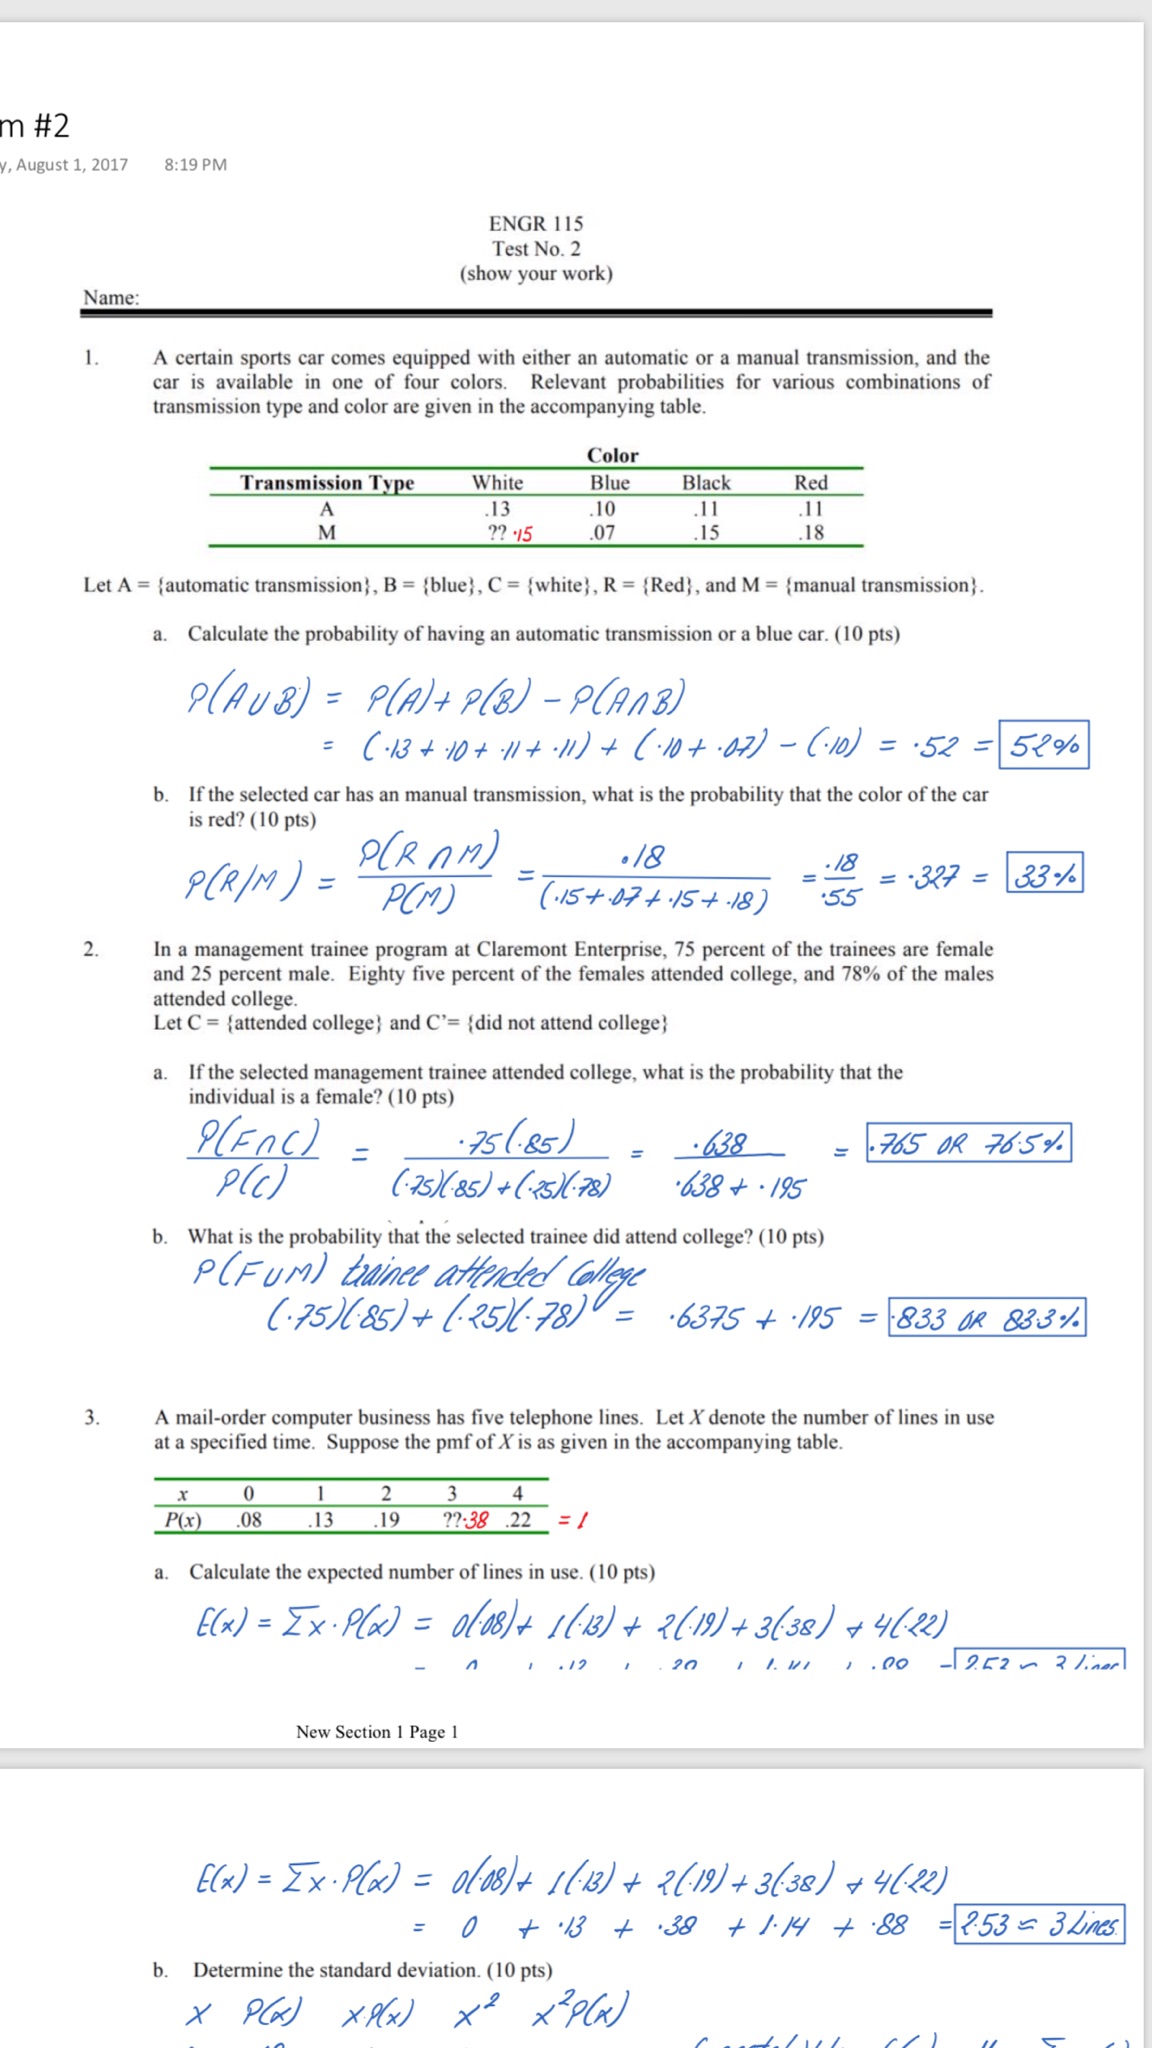 m #2
y, August 1, 2017 8:19 PM
ENGR 115
Test No. 2
(show your work)
Name:
1. A certain sports car comes equipped with either an automatic or a manual transmission, and the
car is available in one of four colors. Relevant probabilities for various combinations of
transmission type and color are given in the accompanying table.
Color
Transmission Type White Blue Black Red
A .13 .10 .11 .11
M ?? .15 .07 .15 .18
Let A = {automatic transmission}, B = {blue}, C = {white}, R = {Red}, and M = {manual transmission}.
a. Calculate the probability of having an automatic transmission or a blue car. (10 pts)
P(A∪B) = P(A)+ P(B) - P(A∩B)
= (.13 + .10 + .11 + .11) + (.10 + .07) - (.10) = .52 = 52%
b. If the selected car has an manual transmission, what is the probability that the color of the car
is red? (10 pts)
P(R/M) = P(R ∩ M) / P(M) = .18 / (.15+.07+.15+.18) = .18 / .55 = .327 = 33%
2. In a management trainee program at Claremont Enterprise, 75 percent of the trainees are female
and 25 percent male. Eighty five percent of the females attended college, and 78% of the males
attended college.
Let C = {attended college} and C'= {did not attend college}
a. If the selected management trainee attended college, what is the probability that the
individual is a female? (10 pts)
P(F∩C) / P(C) = .75(.85) / (.75)(.85)+(.25)(.78) = .638 / .638 + .195 = .765 OR 76.5%
b. What is the probability that the selected trainee did attend college? (10 pts)
P(F∪M) trainee attended College
(.75)(.85)+(.25)(.78) = .6375 + .195 = .833 OR 83.3%
3. A mail-order computer business has five telephone lines. Let X denote the number of lines in use
at a specified time. Suppose the pmf of X is as given in the accompanying table.
x 0 1 2 3 4
P(x) .08 .13 .19 ??.38 .22 = 1
a. Calculate the expected number of lines in use. (10 pts)
E(x) = Σx·P(x) = 0(.08)+ 1(.13) + 2(.19)+3(.38) + 4(.22)
New Section 1 Page 1
E(x) = Σx·P(x) = 0(.08)+ 1(.13) + 2(.19)+3(.38) + 4(.22)
= 0 + .13 + .38 + 1.14 + .88 = 2.53 ≈ 3 Lines.
b. Determine the standard deviation. (10 pts)
x P(x) xP(x) x² x²P(x)